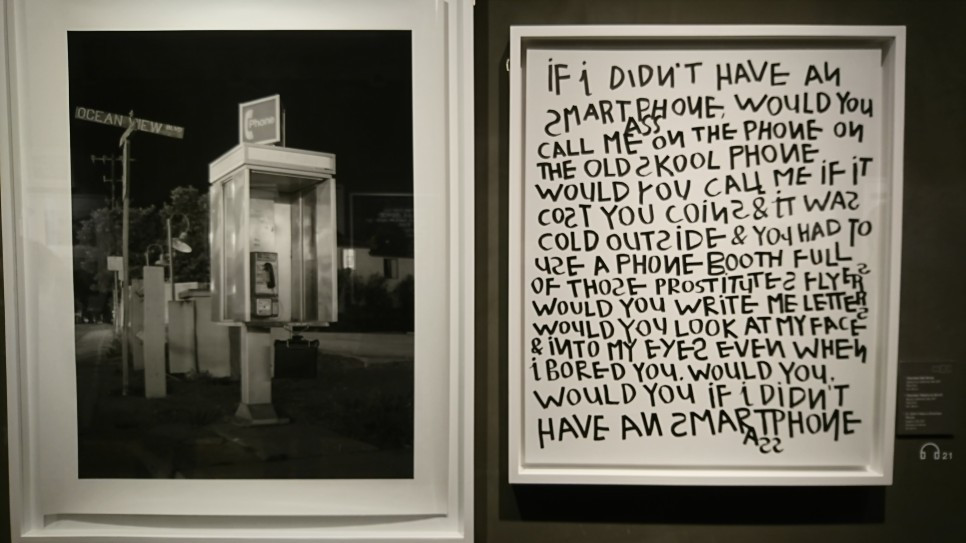 OCEAN VIEW
Phone
iF i DIDN'T HAVE AN
SMARTPHONE, WOULD YOU
ASS
CALL ME ON THE PHONE ON
THE OLD SKOOL PHONE
WOULD YOU CALL ME iF iT
COST YOU COiNS & iT WAS
COLD OUTSIDE & YOU HAD TO
USE A PHONE BOOTH FULL
OF THOSE PROSTITUTES FLYERS
WOULD YOU WRITE ME LETTERS
WOULD YOU LOOK AT MY FACE
& iNTO MY EYES EVEN WHEN
i BORED YOU. WOULD YOU.
WOULD YOU iF i DiDN'T
HAVE AN SMARTPHONE
ASS
21